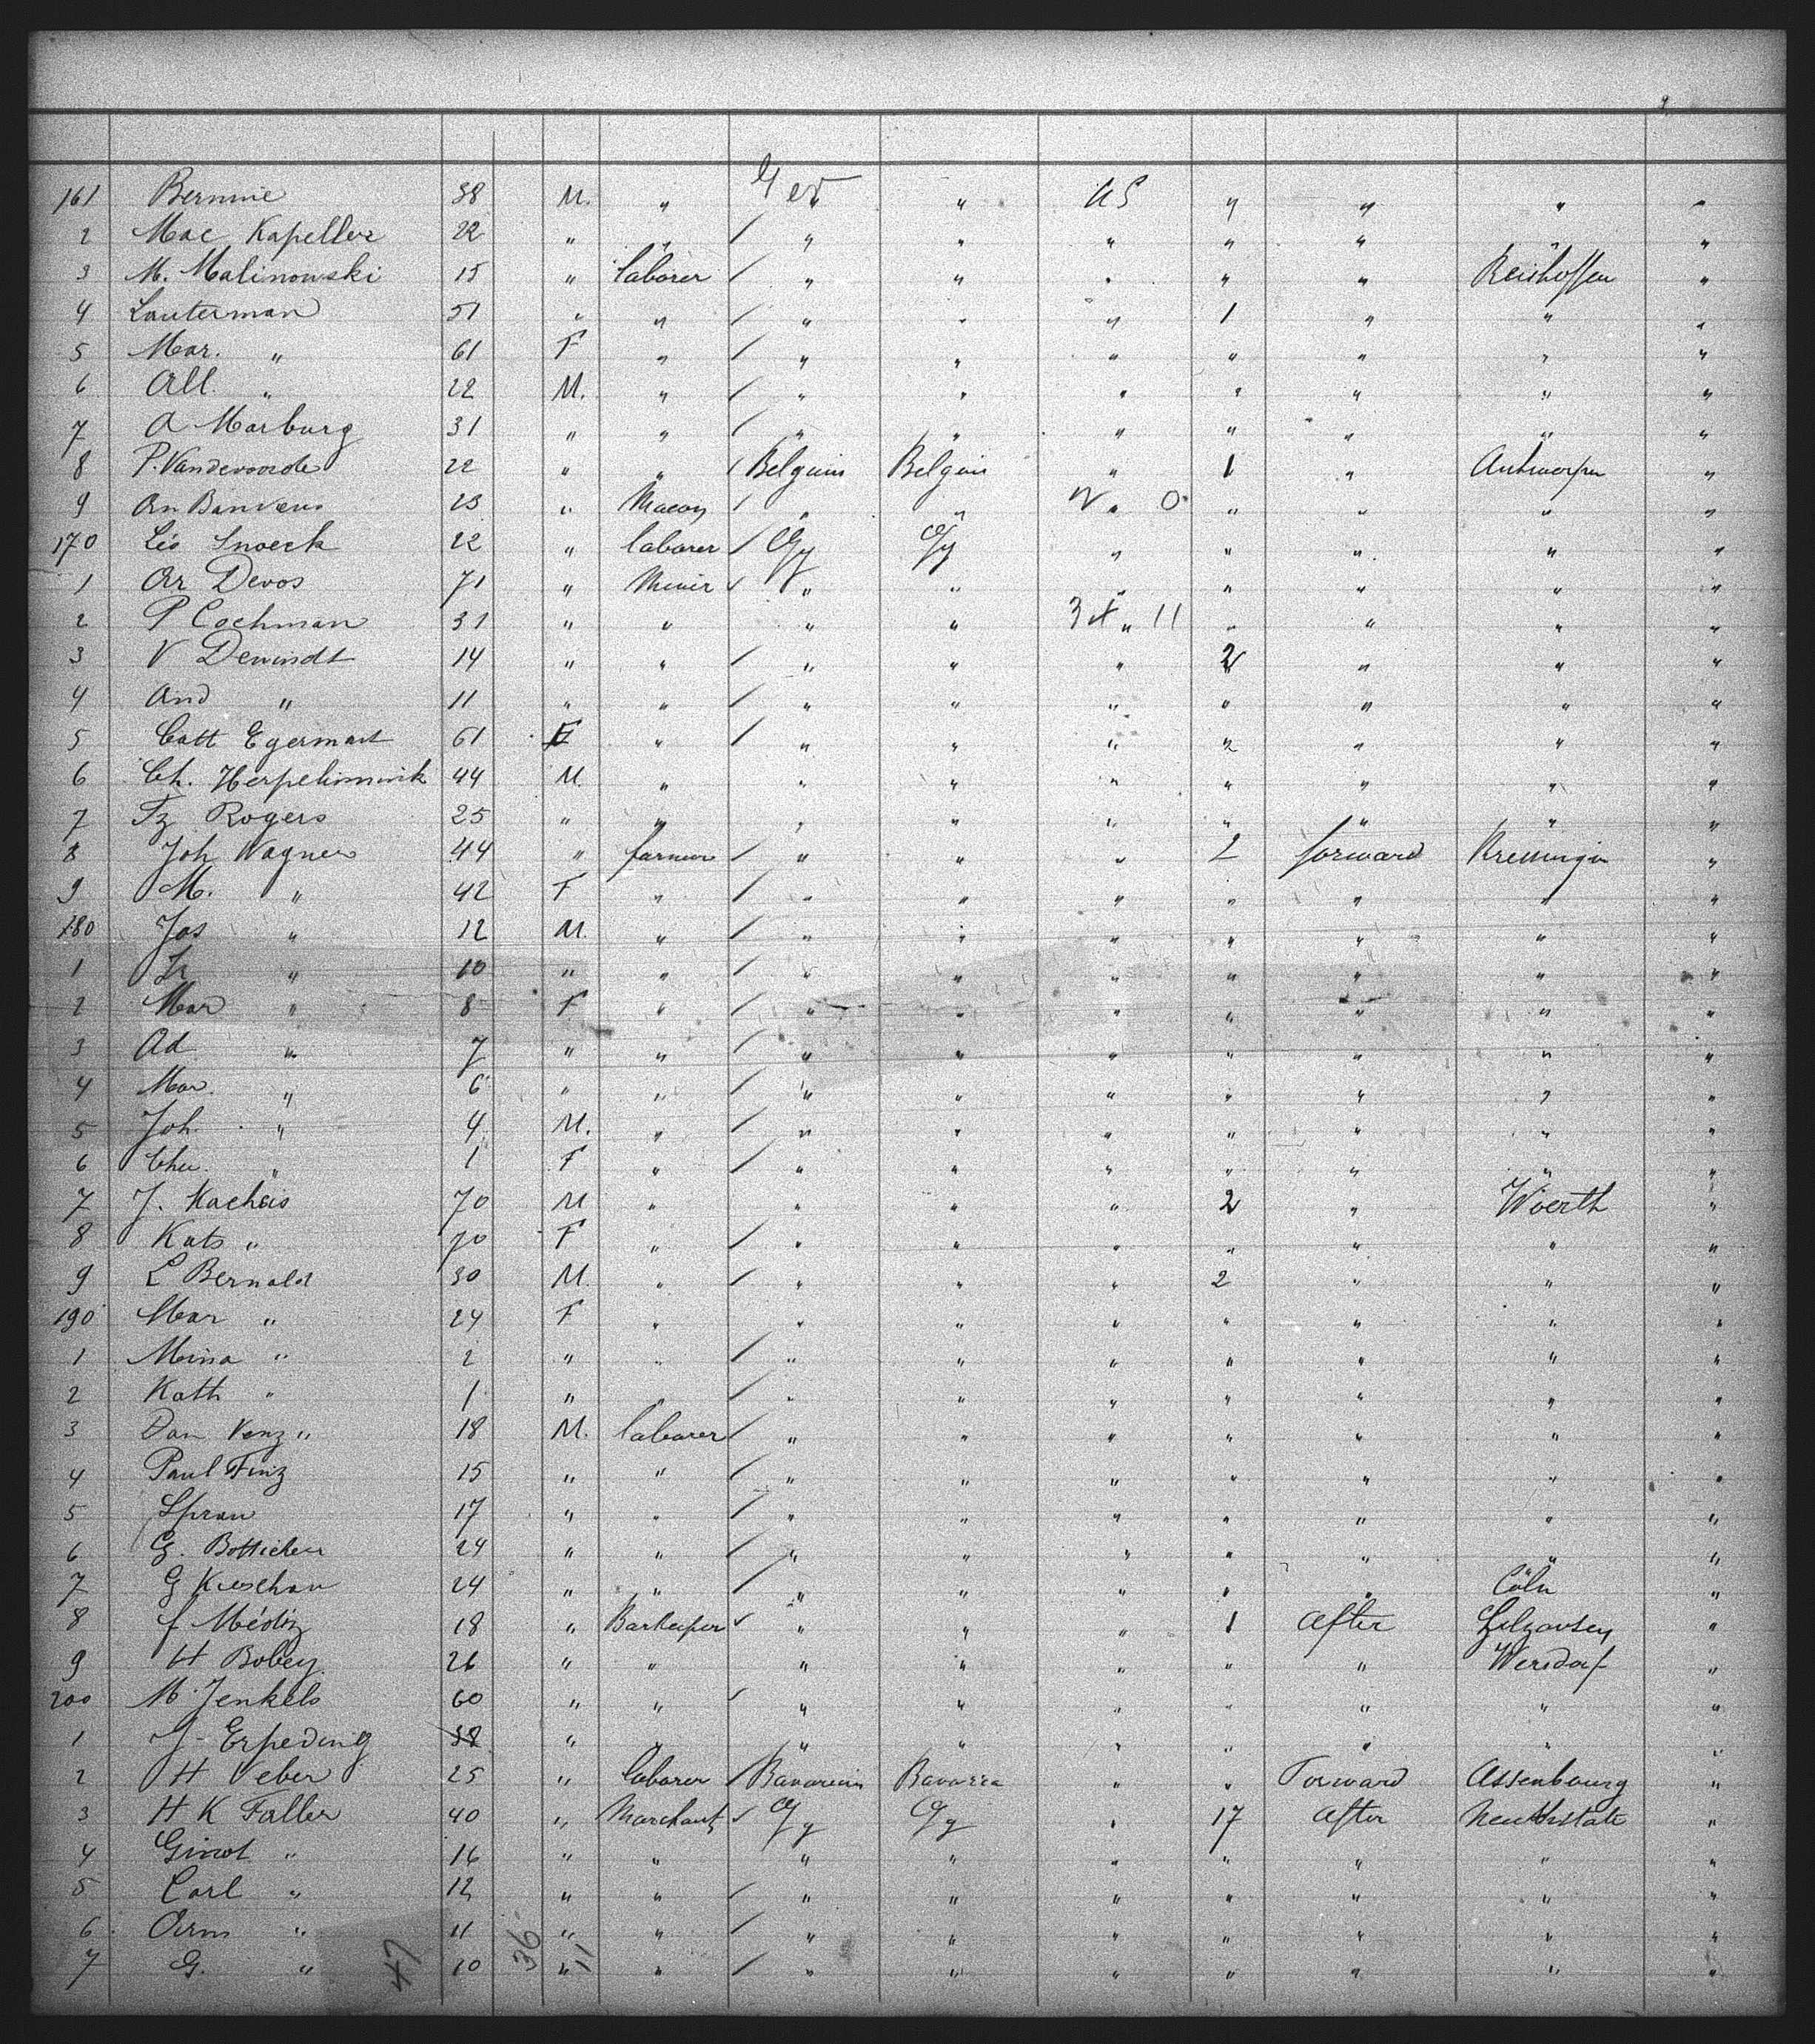 161 Bernnie 38 M. " Ger " " US " " " "
2 Mac Kapeller 22 " " / " " " " " " "
3 M. Malinowski 15 " laborer / " " " " " Reishoffen "
4 Lauterman 51 " " / " " " 1 " " "
5 Mar. " 61 F " / " " " " " " "
6 All. " 22 M. " / " " " " " " "
7 A Marburg 31 " " / " " " " " " "
8 P. Vandevoorde 22 " " / Belguim Belguim " 1 " Antwerpen "
9 An Banvens 23 " Macon / " " " 0 " " " "
170 Léo Snoeck 22 " laborer / Gy Gy " " " " "
1 Ar Devos 71 " Minir / " " " " " " "
2 P Cochman 31 " " " " 3 " 11 " " " "
3 V Dewindt 14 " " / " " " 2 " " "
4 And " 11 " " / " " " " " " "
5 Catt Egermart 61 F " / " " " 2 " " "
6 Ch. 44 M. " " " " " " " "
7 Fz Rogers 25 " " " " " " " " "
8 Joh Wagner 44 " farmer / " " " 2 forward "
9 M. " 42 F " / " " " " " " "
180 Jos " 12 M. " / " " " " " " "
1 " 10 " " / " " " " " " "
2 Mar " 8 F " / " " " " " " "
3 Ad " 7 " " / " " " " " " "
4 Mar. " 6 " " / " " " " " " "
5 Joh. " 4 M. " / " " " " " " "
6 Chr. " 1 F " / " " " " " " "
7 J. Kacheis 70 M " " " " 2 " Woerth "
8 Kats " 70 F " / " " " " " " "
9 L Bernald 30 M. " / " " " 2 " " "
190 Mar " 24 F " " " " " " " "
1 Mina " 2 " " / " " " " " " "
2 Kath " 1 " " / " " " " " " "
3 Dan Venz " 18 M. laborer / " " " " " " "
4 Paul Finz 15 " " / " " " " " " "
5 Spran 17 " " / " " " " " " "
6 G. Botticher 24 " " / " " " " " " "
7 G Kieschan 24 " " / " " " " " Cöln "
8 f Médiz 18 " Barkeeper / " " " 1 after "
9 H Bobey 26 " " " " " " " Wersdorf "
200 M. Jenkels 60 " " / " " " " " " "
1 J. Erpeding 38 " " " " " " " " "
2 H Veber 25 " laborer / Bavarein Bavaria " " Forward Assenbourg "
3 H K Faller 40 " Marchant / Gy Gy " 17 after Neuthstate "
4 Ginot " 16 " " " " " " " " "
5 Carl " 12 " " / " " " " " " "
6 Arm " 11 " " / " " " " " " "
7 G. " 10 " " / " " " " " " "
47 36 11